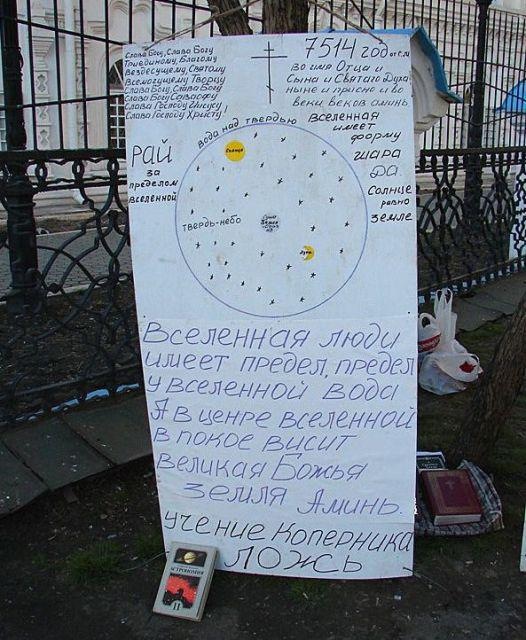 Слава Богу, Слава Богу
Триединому, Благому
Вездесущему Святому
Всемогущему Творцу
Слава Богу, Слава Богу
Слава Богу Саваофу
Слава Господу Иисусу
Слава Господу Христу!
7514 год от с.м
во имя Отца и
Сына и Святаго Духа
ныне и присно и во
веки веков аминь.
Вселенная
имеет
форму
шара
да.
Солнце
равно
земле
Рай
за
пределом
вселенной
вода над твердью
Солнце
твердь-небо
Луна
Вселенная люди
имеет предел, предел
у вселенной вода
А в ценре вселенной
в покое висит
великая Божья
земля Аминь.
учение Коперника
ложь
Астрономия
11